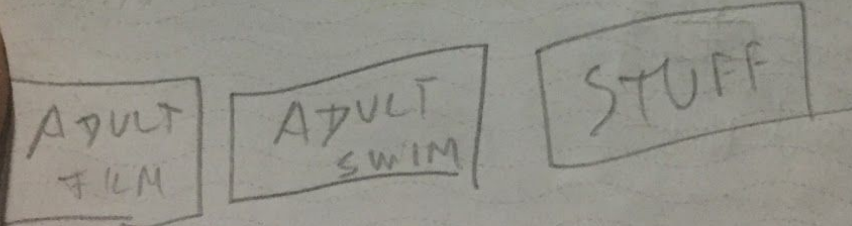 ADULT
FILM
ADULT
SWIM
STUFF